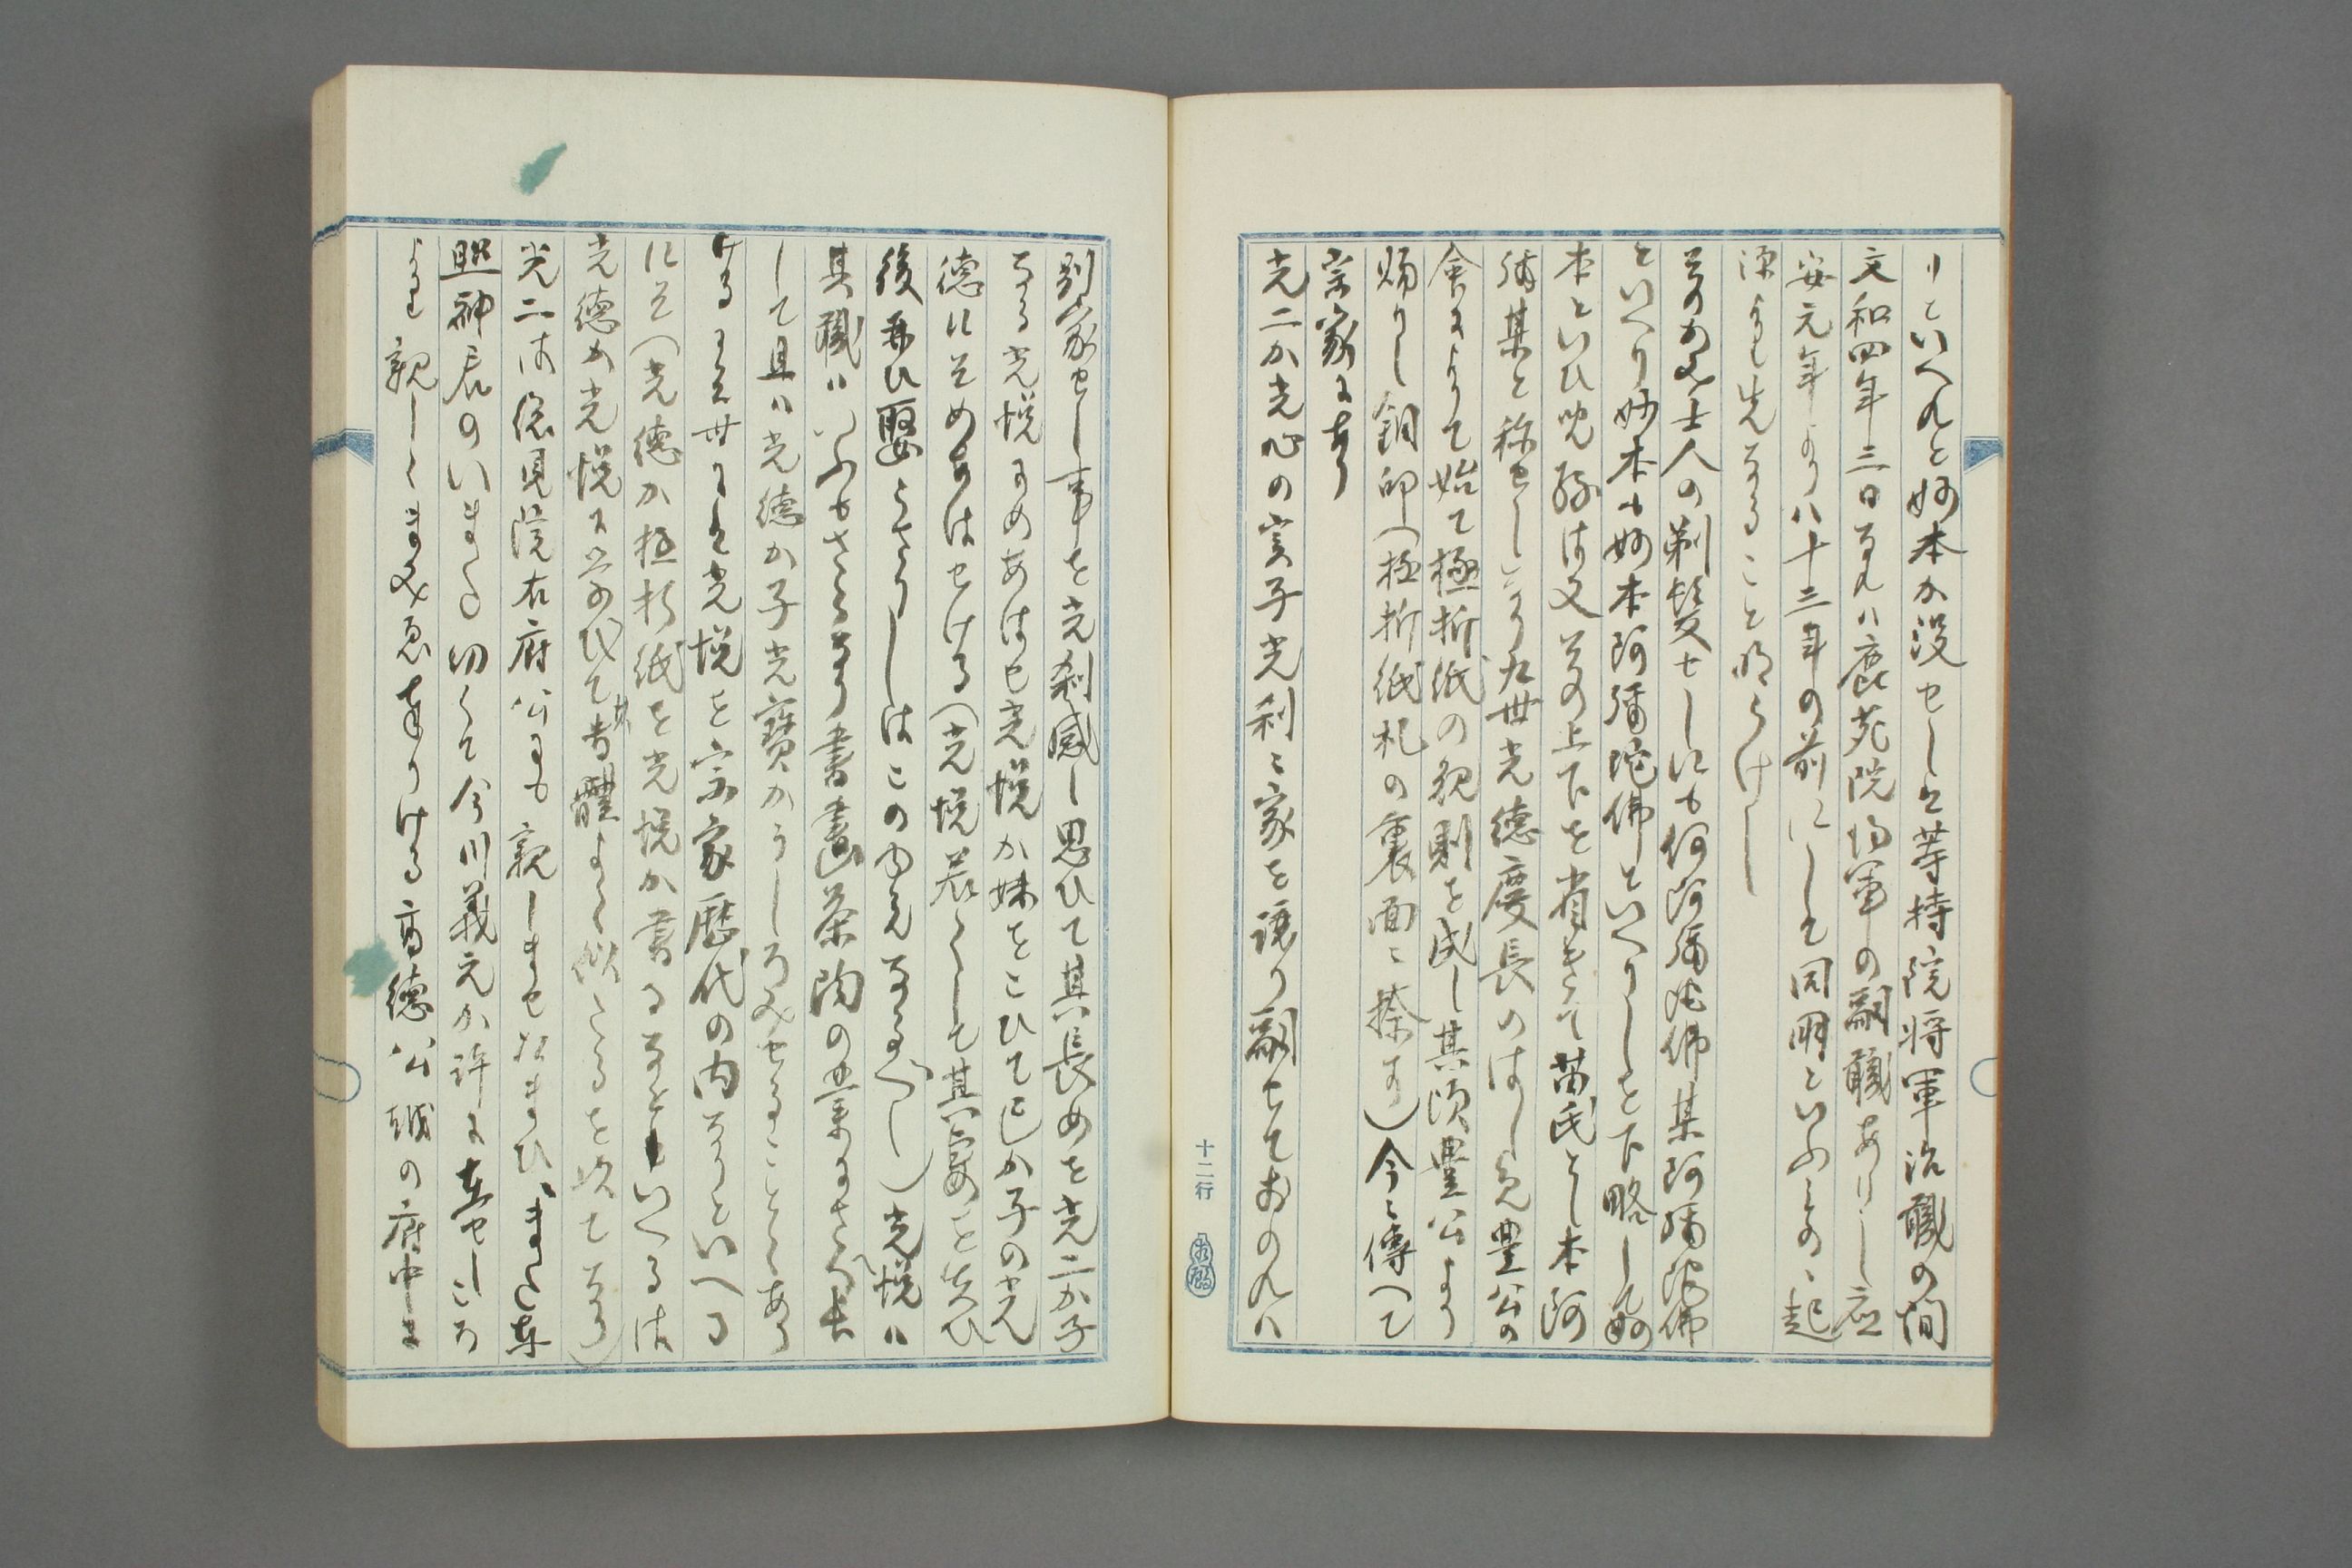 りといへれと妙本か没せしは等持院将軍治職の間
文和四年三日なれは鹿苑院将軍の嗣職ありし応
安元年より八十三年の前にして同朋といふもの、起
源よりも先なること明らけし
そのかみ士人の剃髪せしにも何阿彌陀佛某阿彌陀佛
といへり妙本も妙本阿彌陀佛といへりしを下略して妙
本といひ児孫は又その上下を省きて苗氏とし本阿
彌某と称せしなり九世光徳慶長のはしめ豊公の
命によりて始て極折紙の規則を成し其頃豊公より
賜りし銅印(極折紙札の裏面ニ捺す)今ニ傳へて
宗家にあり
光二か光心の実子光利ニ家を譲り嗣せておのれハ
十二行
別家せし事を光利感し思ひて其長めを光二か子
なる光悦にめあはせ光悦か妹をこひて己か子の光
徳にそめあはせける(光悦若くして其妻を失ひ
後再ひ娶らさりしはこの故なるへし)光悦ハ
其職ハいふもさらなり書畫茶陶の業にさへ長
して且ハ光徳か子光寶かうしろみせることもあり
ける故世には光悦を宗家歴代の内なりといへる
にそ(光徳か極折紙を光悦か書るなともいへるは
光徳か光悦に学ひて其書體よく似たるを以てなり)
光二は總見院右府公にも親しませたまひ、また東
照神君のいまた切くて今川義元か許に在せしころ
よりも親しくまみえ奉りける高徳公越の府中に